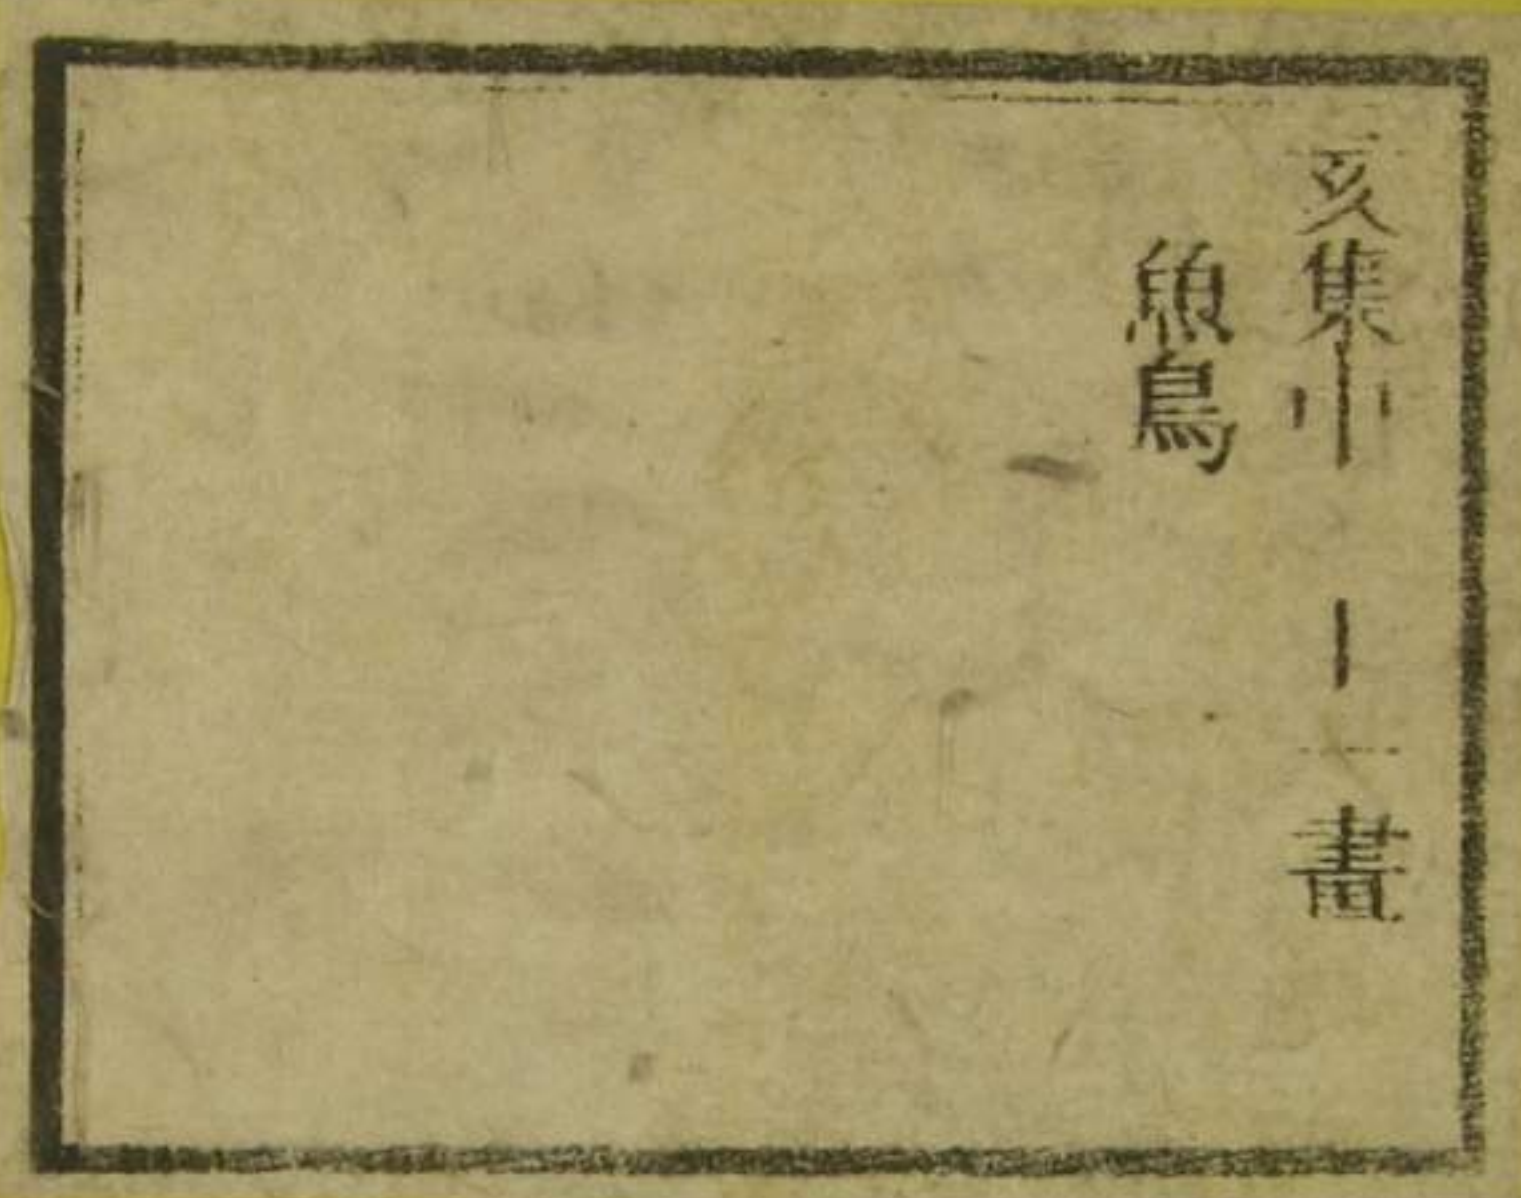 亥集中 十一畫
魚鳥